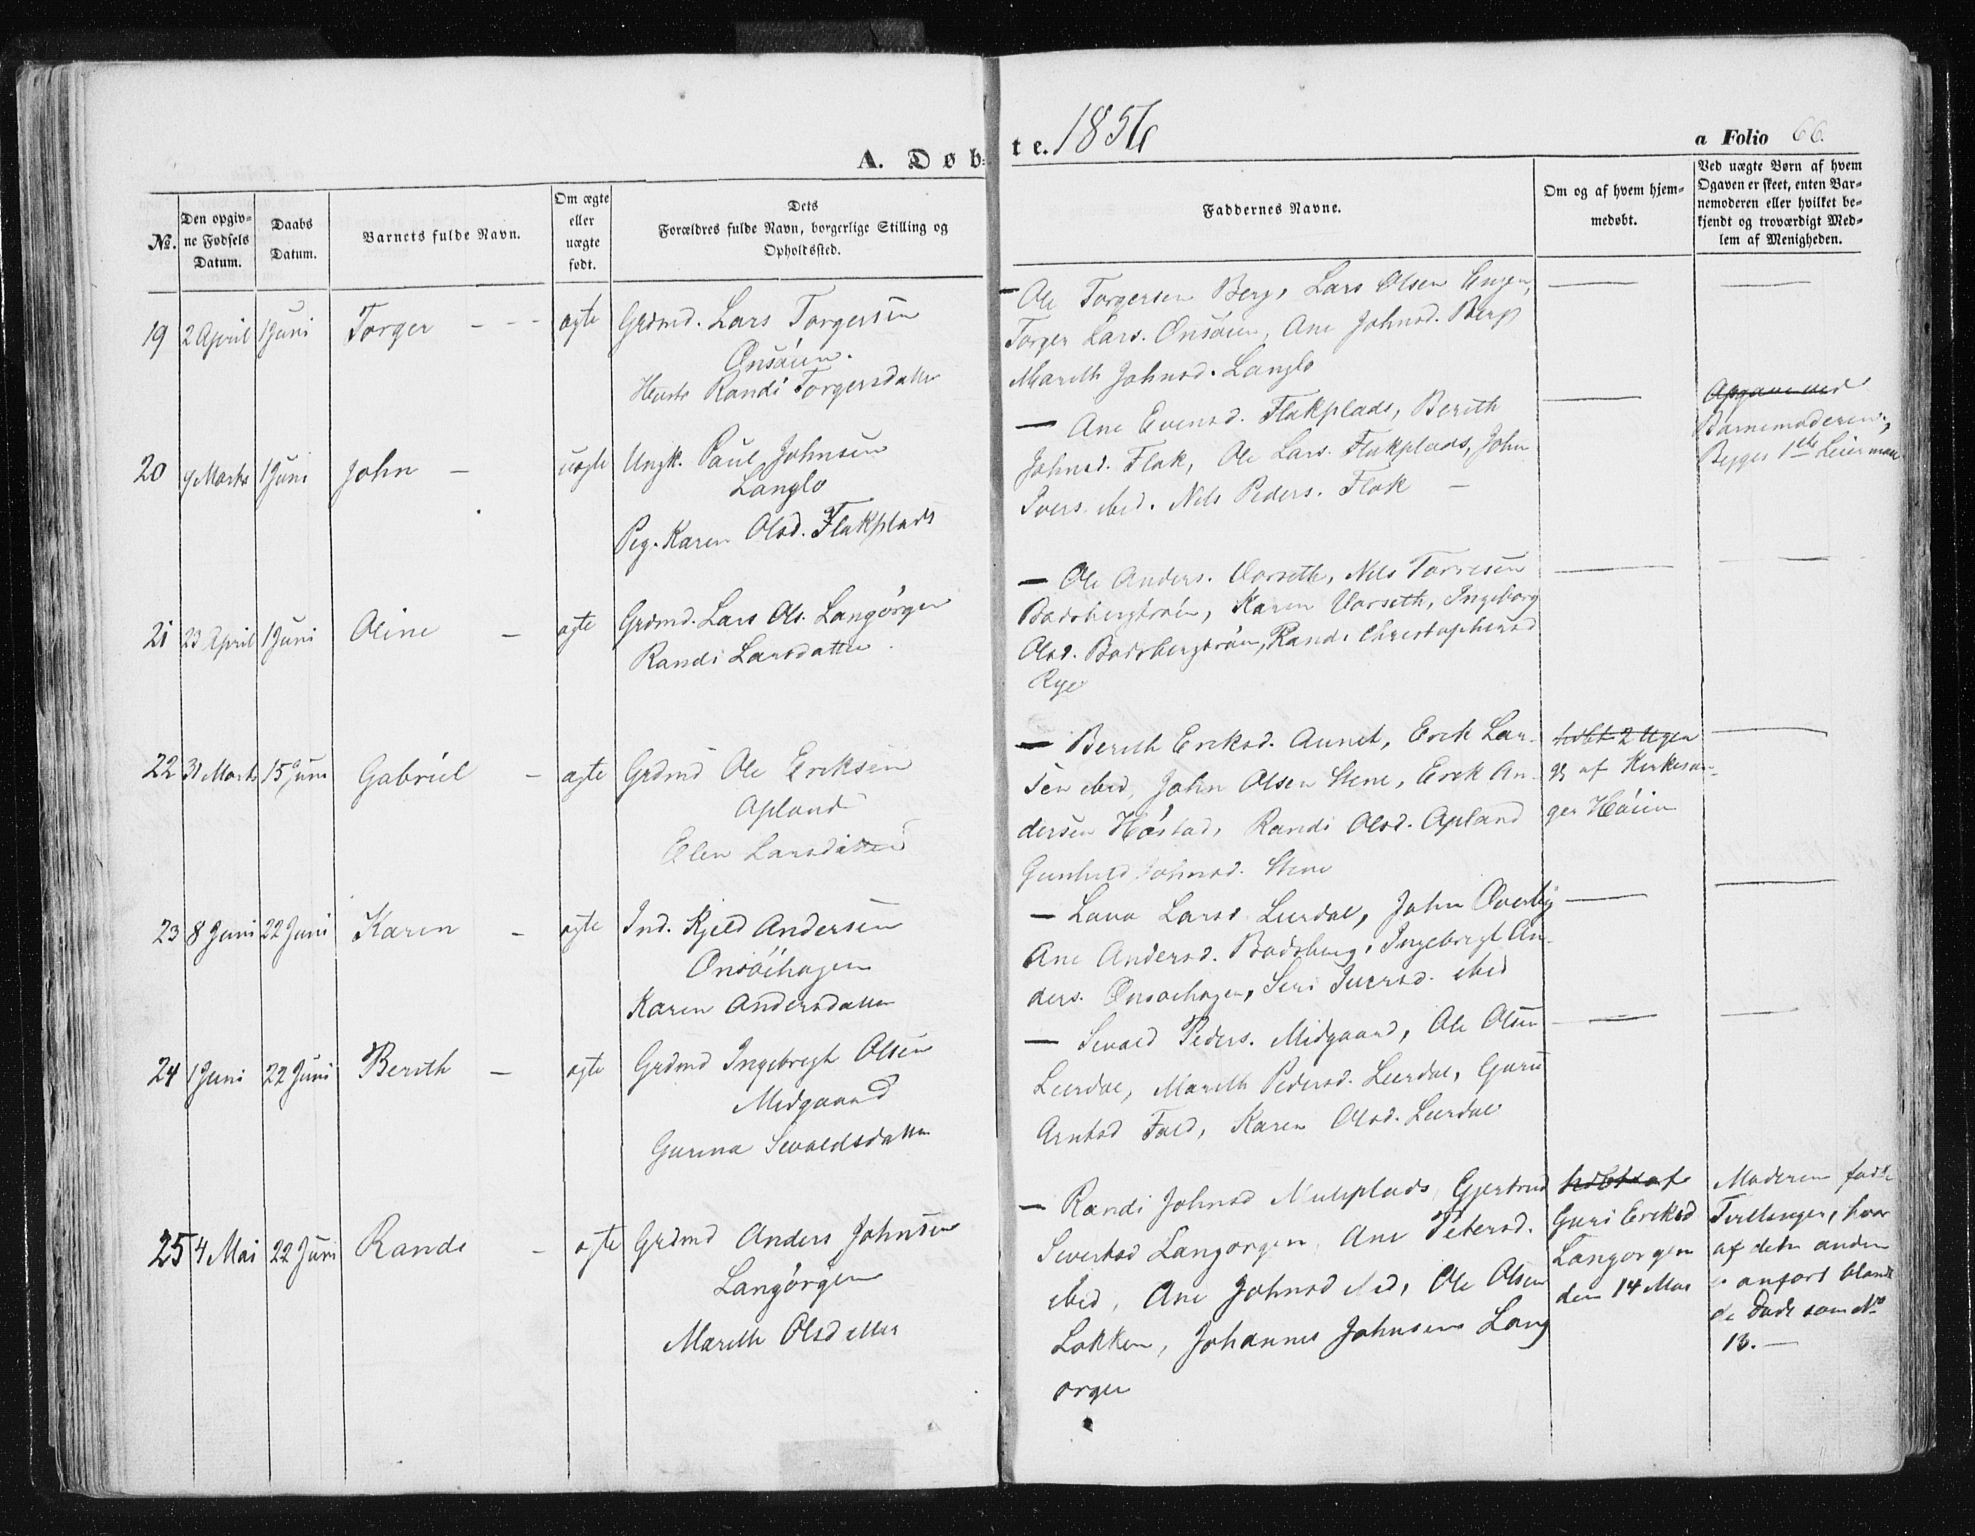 A. Døb=
te. 1856
a Folio 66.
No.
Den opgiv=
ne Fødsels
Datum.
Daabs
Datum.
Barnets fulde Navn.
Om ægte
eller
uægte
født.
Dets
Forældres fulde Navn, borgerlige Stilling og
Opholdssted.
Faddernes Navne.
Om og af hvem hjem=
medøbt.
Ved uægte Børn af hvem
Opgaven er skeet, enten Bar=
nemoderen eller hvilket be=
kjendt og troværdigt Med=
lem af Menigheden.
19 2 April 1 Juni Torger - - - ægte Grdmd. Lars Torgersen
Onsøien.
Randi Torgersdatter
— Ole Torgersen Berg, Lars Olsen Engen,
Torger Lars. Onsøien, Ane Johnsd. Berg
Marith Johnsd. Langlo
20 Marts 1 Juni John - uægte Ungk. Paul Johnsen
Langlo
Pig. Karen Olsd. Flakplads
— Ane Evensd. Flakplads, Berith
Johnsd. Flak, Ole Lars. Flakplads, John
Ivers. ibid. Nils Peders. Flak —
Barnemoderen,
Begges 1ste Leiermaal
21 23 April 1 Juni Oline - ægte Grdmd. Lars Ols. Langørgen
Randi Larsdatter.
— Ole Anders. Vorseth, Nils Torresen
Bodsbergtrøen, Karen Vorseth, Ingeborg
Olsd. Bodsbergtrøen, Randi Christophersd
Rye
22 31 Marts 15 Juni Gabriel - ægte Grdmd Ole Eriksen
Apland
Elen Larsdatter
— Berith Eriksd. Aunet, Erik Lar-
sen ibid, John Olsen Stene, Erik An-
dersen Høstad, Randi Olsd. Apland
Gunhild Johnsd. Stene
af Kirkesan-
ger Høiem
23 8 Juni 22 Juni Karen - ægte Ind. Kjeld Andersen
Onsøihagen
Karen Andersdatter
— Lava Larsd. Leerdal, John Overby
Ane Andersd. Bodsberg, Ingebrigt An-
ders. Onsøihagen, Seri Iversd. ibid
24 1 Juni 22 Juni Berith - ægte Grdmd Ingebrigt Olsen
Midgaard
Gurina Sevaldsdatter
— Sevald Peders. Midgaard, Ole Olsen
Leerdal, Marith Pedersd. Leerdal, Guru
Arntsd Fald, Karen Olsd. Leerdal
25 4 Mai 22 Juni Randi - ægte Grdmd Anders Johnsen
Langørgen
Marith Olsdatter
— Randi Johnsd Muliplads, Gjertrud
Sivertsd Langørgen, Ane Petersd.
ibid, Ane Johnsd ibid, Ole Olsen
Løkken, Johannes Johnsen Lang
ørgen
Guri Eriksd
Langørgen
den 14 Mai
Moderen fødte
Tvillinger, hvor
af den anden
er anført blandt
de Døde som No
13. —